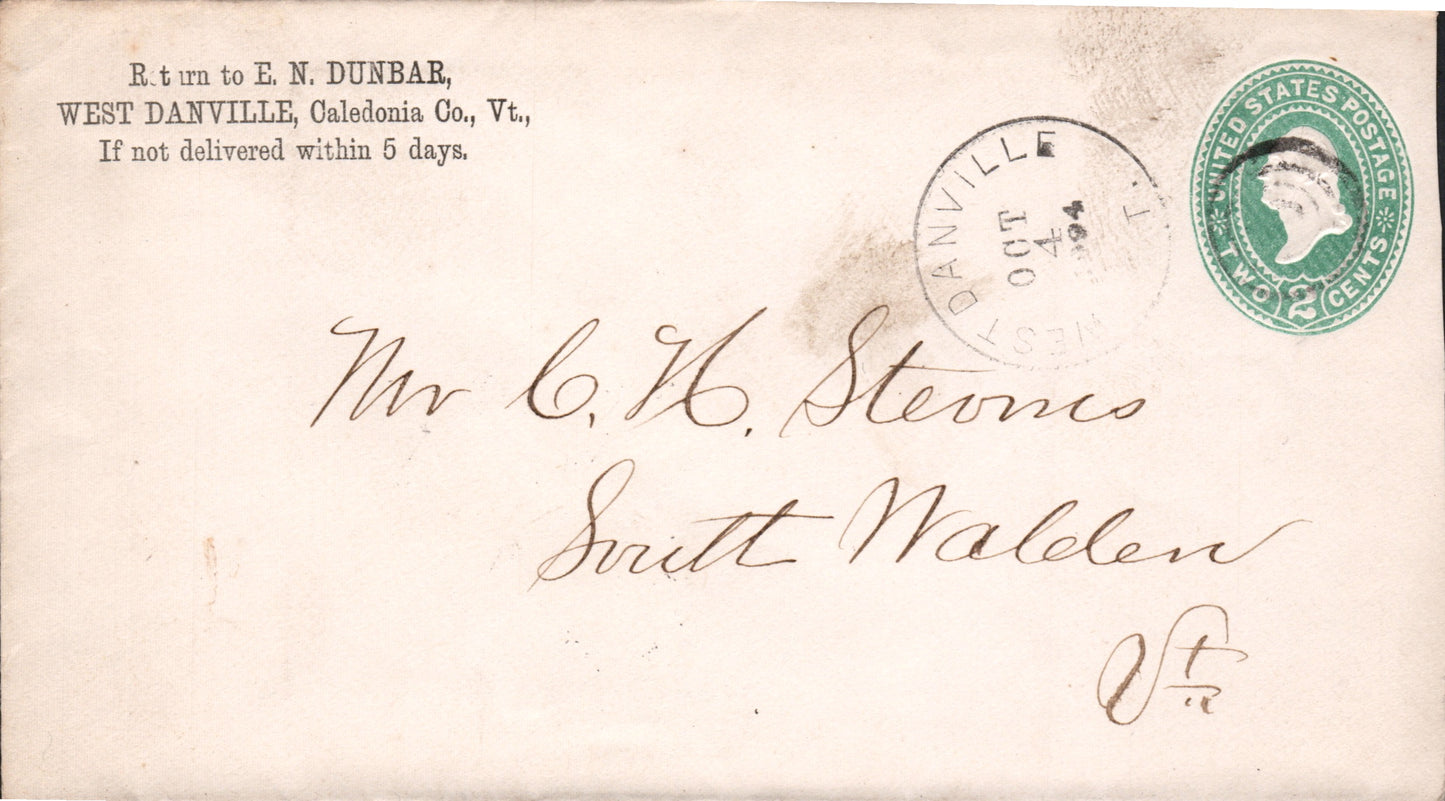 Return to E. N. DUNBAR,
WEST DANVILLE, Caledonia Co., Vt.,
If not delivered within 5 days.
WEST DANVILLE
VT.
OCT
4
1894
UNITED STATES POSTAGE
TWO 2 CENTS
Mr C. H. Stevens
South Walden
Vt